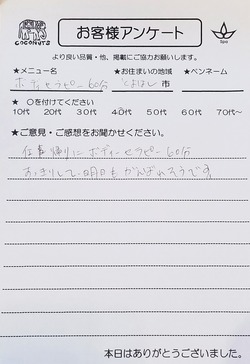 COCONUTS
お客様アンケート
spa
より良い品質・他、掲載にご協力お願いします。
★メニュー名 ★お住まいの地域 ★ペンネーム
ボディセラピー60分 市
★ ○を付けてください
10代 20代 30代 40代 50代 60代 70代〜
★ご意見・ご感想をお聞かせください。
仕事帰りにボディーセラピー60分
すっきりして明日もがんばれそうです
本日はありがとうございました。